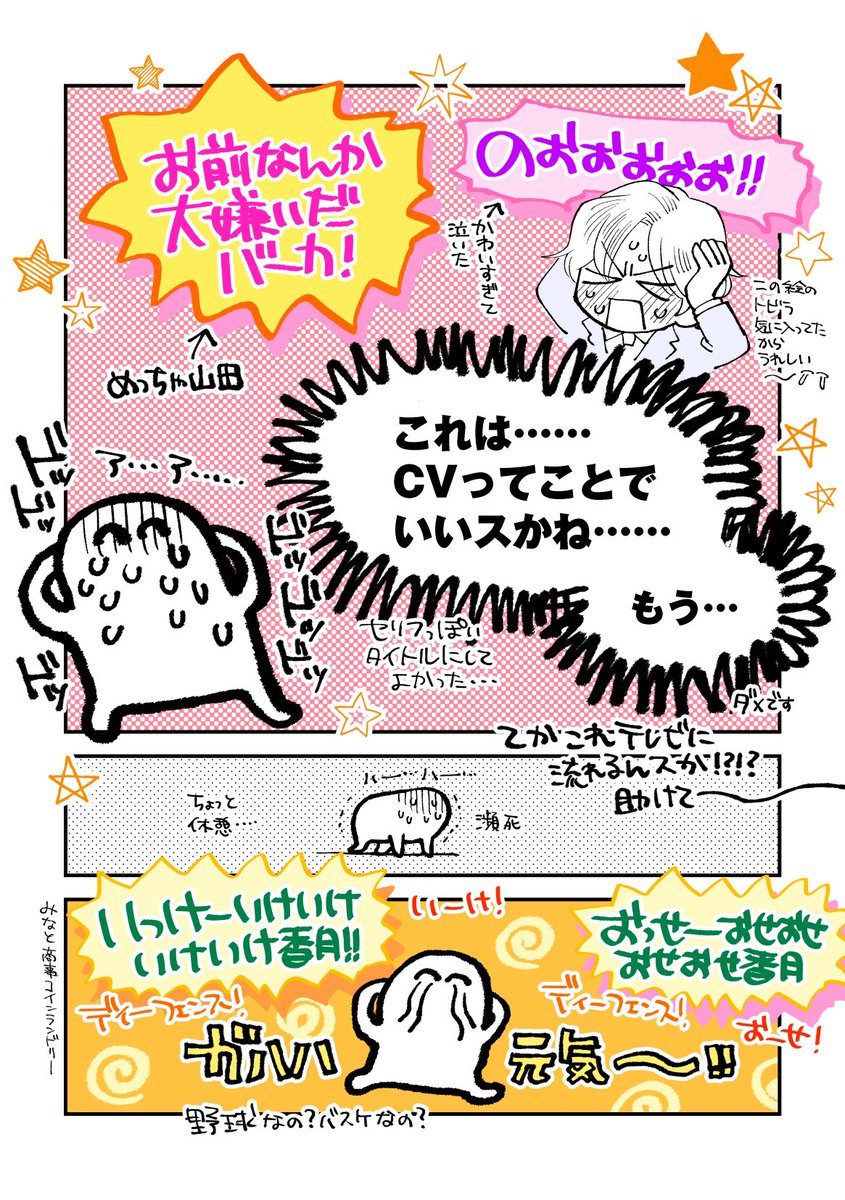 お前なんか
大嫌いだ
バーカ!
のおぉぉぉぉ!!
↑かわいすぎて
泣いた
この絵の
トビラ
気に入ってた
から
うれしい
〜
↑
めっちゃ山田
これは……
CVってことで
いいスかね……
もう…
ダメです
ア…ア……
エッエッ
エッエッエッエッ
エッ
セリフっぽい
タイトルにして
よかった…
てかこれテレビに
流れるんスか!?!?
助けて
ちょっと
休憩…
ハー…ハー…
瀕死
いっけーいけいけ
いけいけ香月!!
いーけ!
おっせーおせおせ
おせおせ香月
おーせ!
ディーフェンス!
ディーフェンス!
ガハハ
元気〜!!
野球なの?バスケなの?
みなと商事コインランドリー